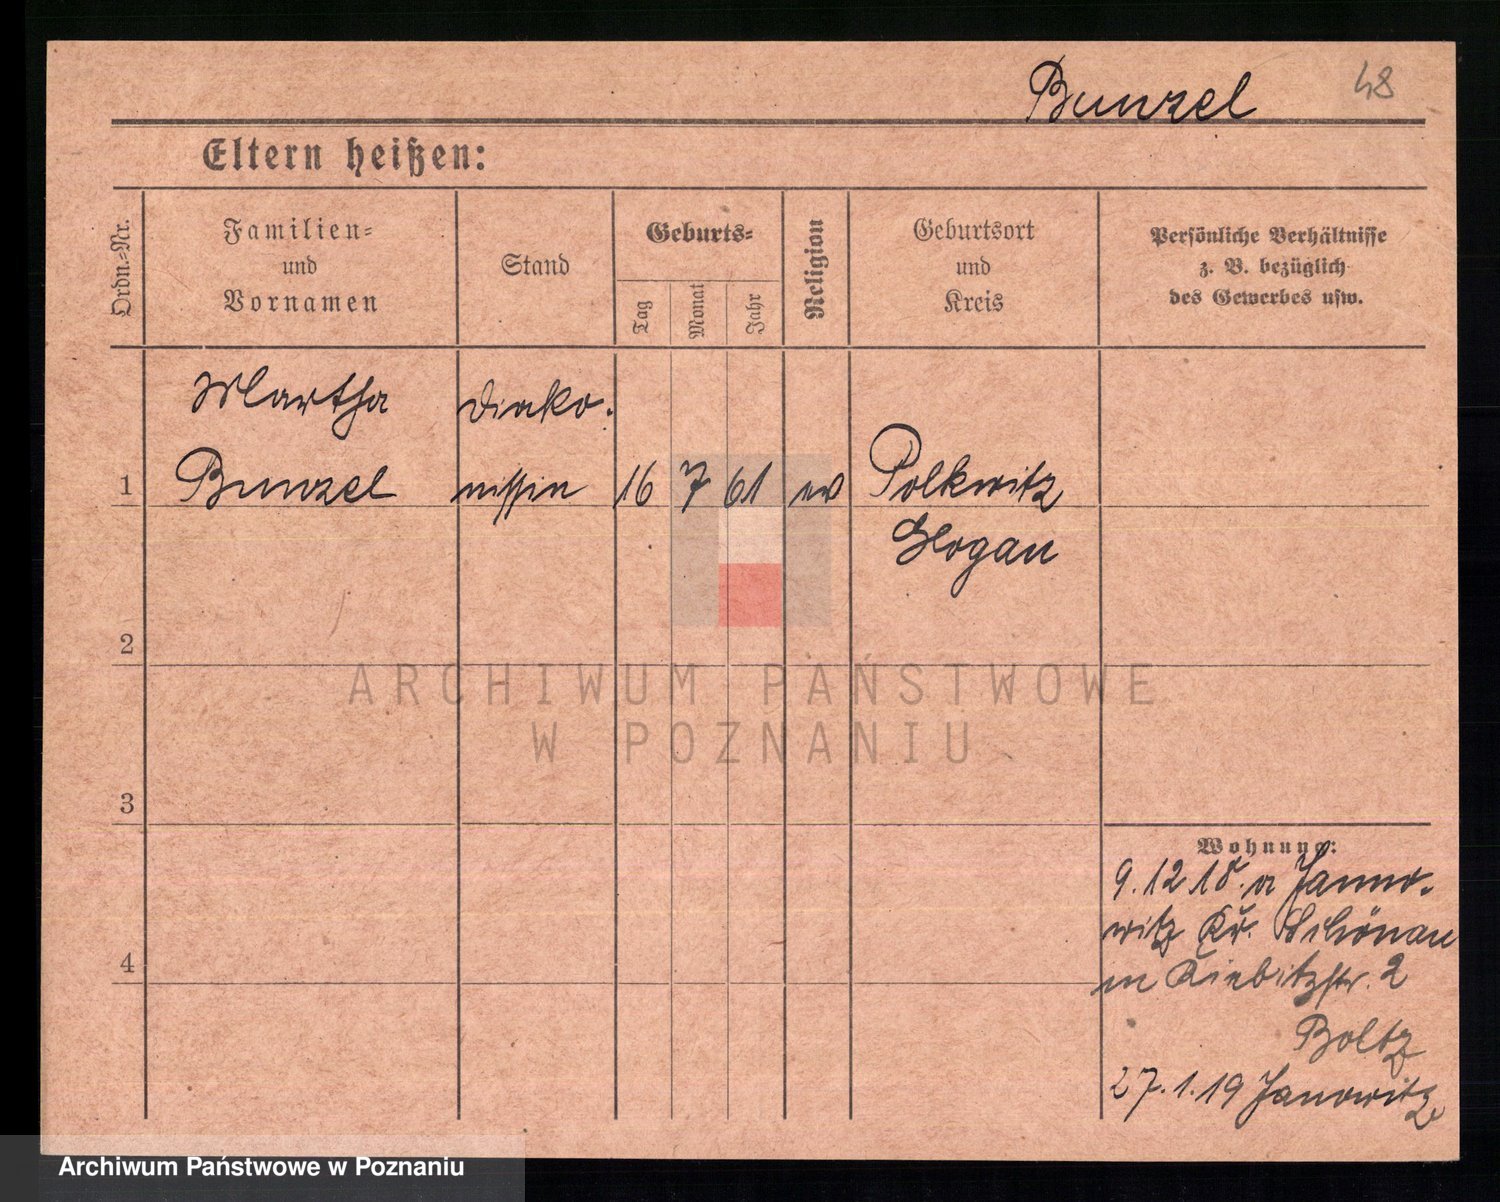 Bunzel 48
Eltern heißen:
Ordn.-Nr.
Familien-
und
Vornamen
Stand
Geburts-
Tag
Monat
Jahr
Religion
Geburtsort
und
Kreis
Persönliche Verhältnisse
z. B. bezüglich
des Gewerbes usw.
Martha diako-
1 Bunzel nissin 16 7 61 ev Polkwitz
Glogau
2
ARCHIWUM PAŃSTWOWE
W POZNANIU
3
Wohnung:
9.12 18. a Janno-
witz Kr. Schönau
4
in Kiebitzstr. 2
Boltz
27.1.19 Janowitz
Archiwum Państwowe w Poznaniu